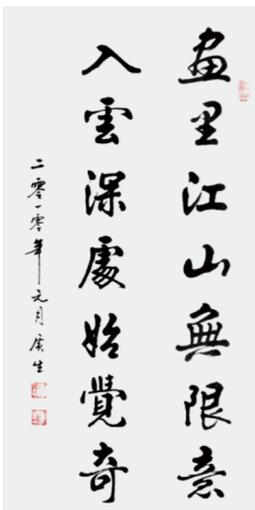 畫里江山無限意
入雲深處始覺奇
二零一零年元月廣生